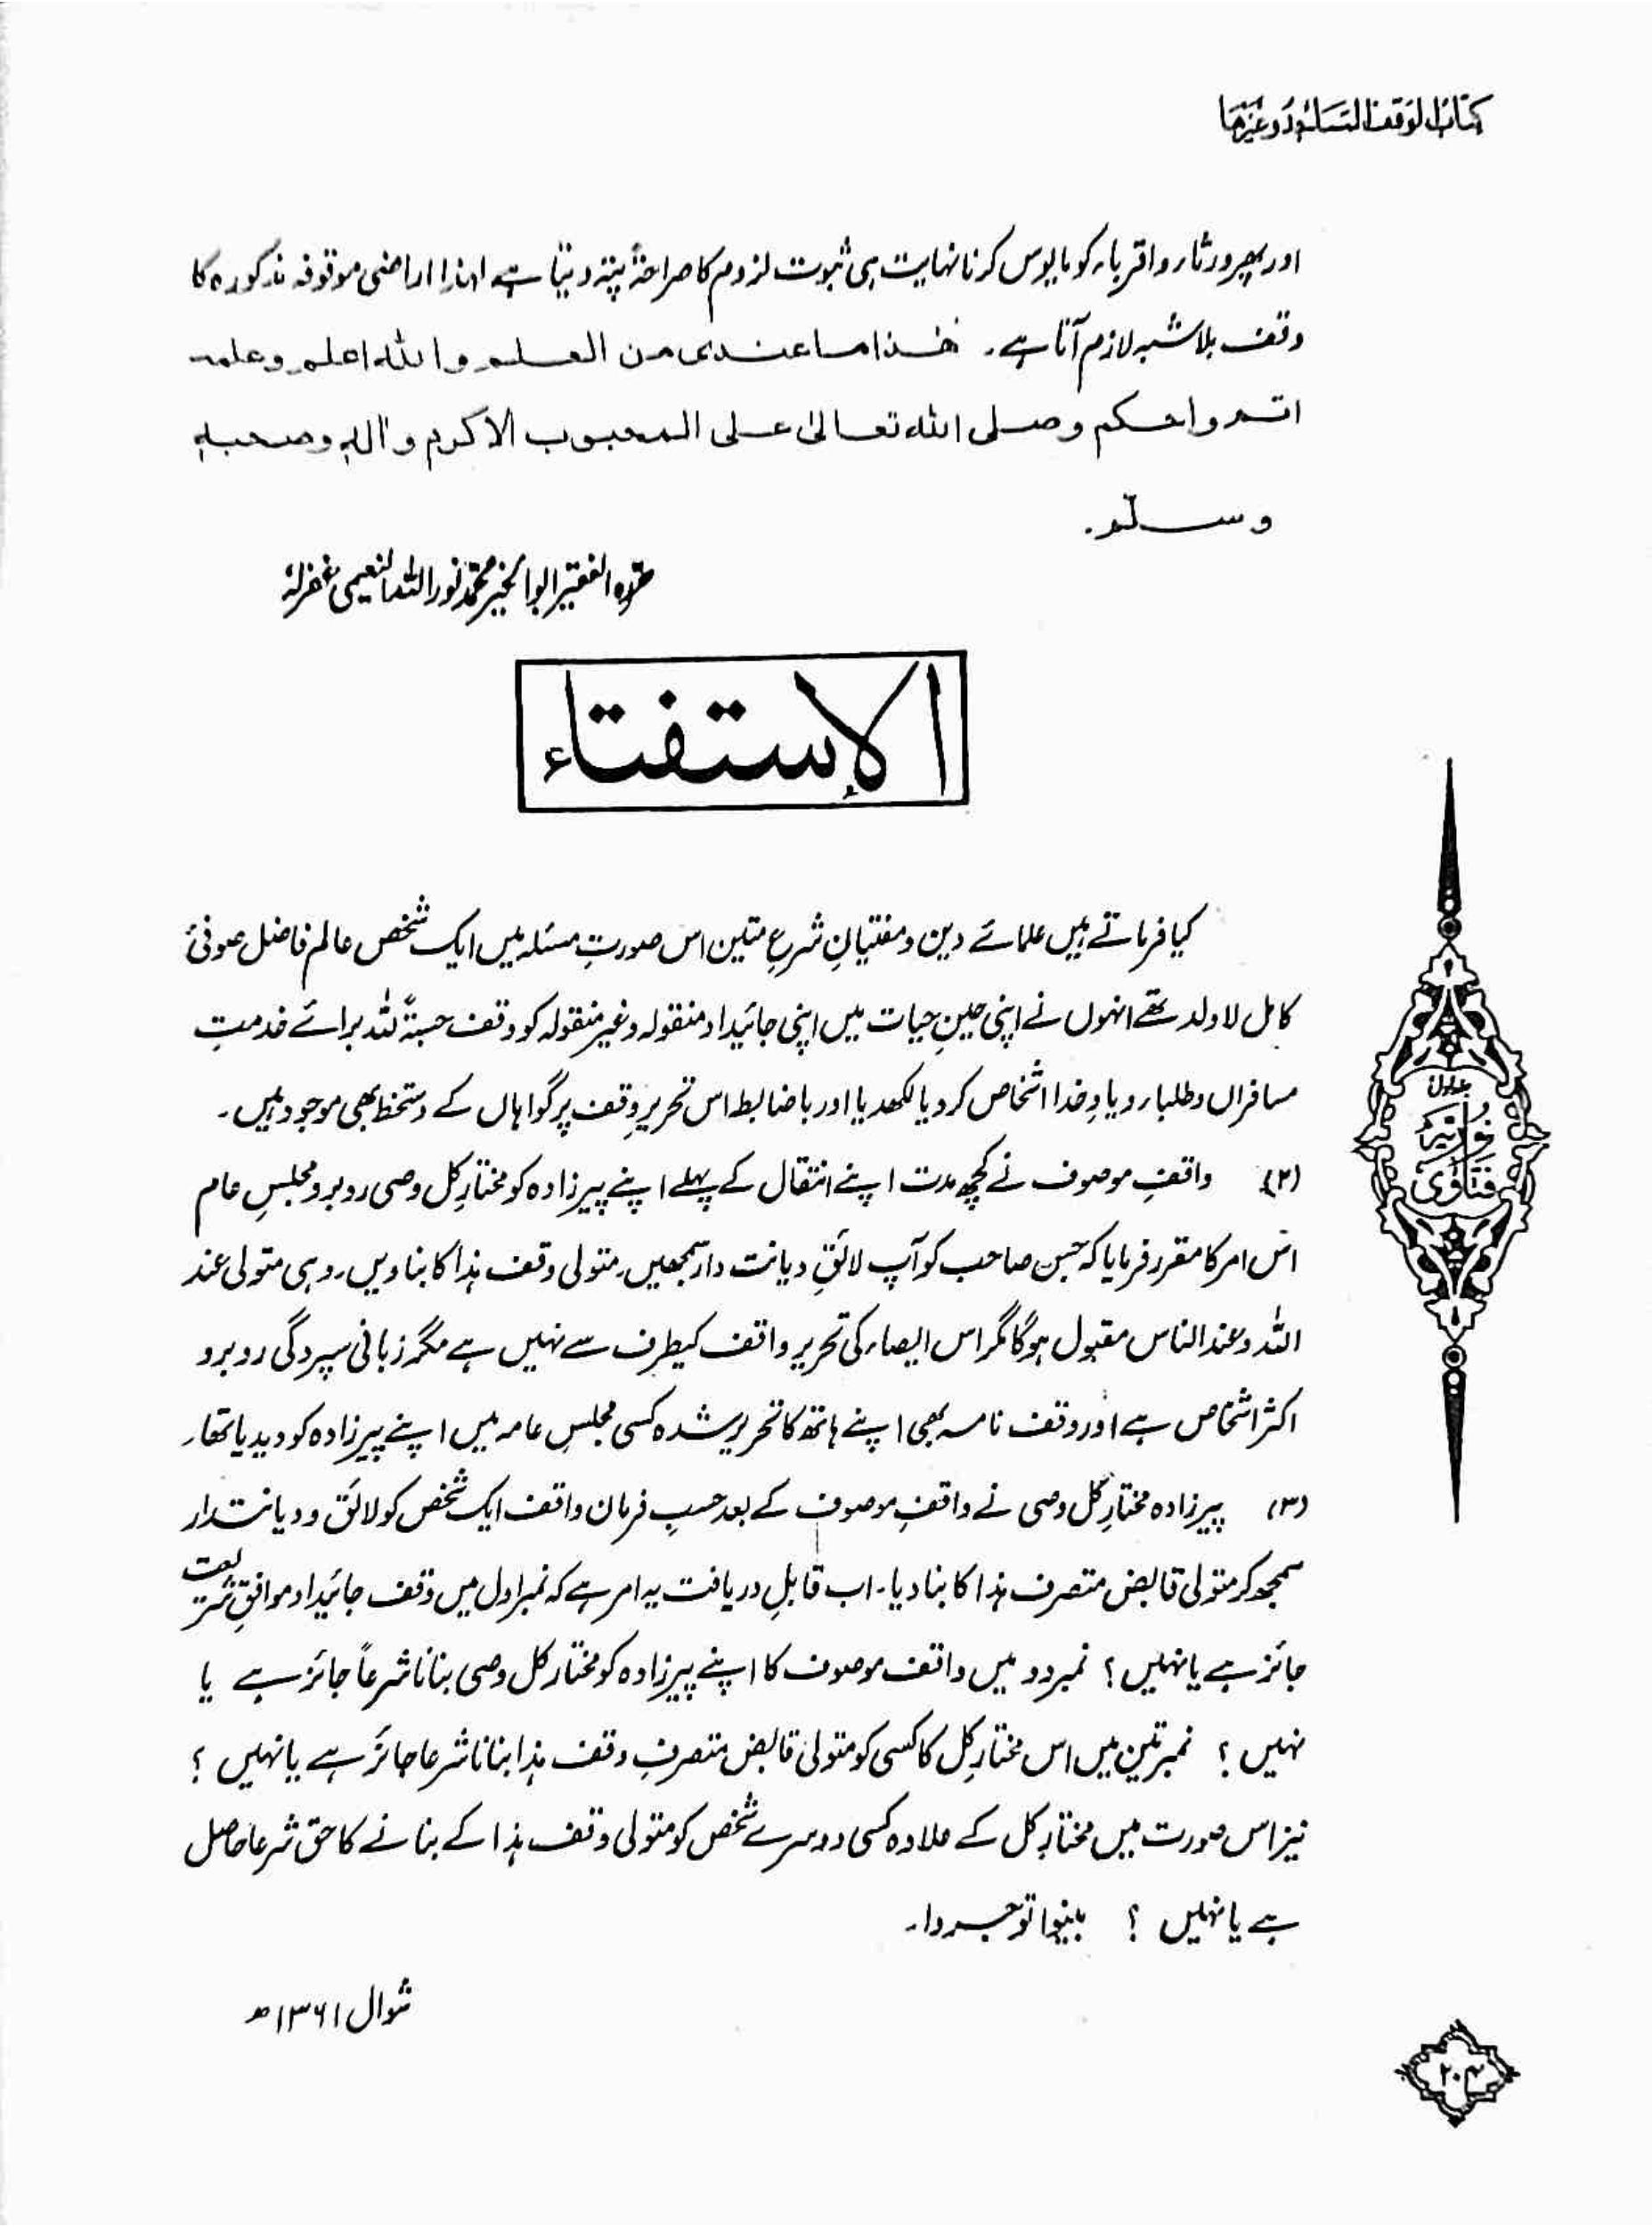 کتاب الوقف المساجد وغیرھا
اور پھر ورثاء و اقرباء کو مایوس کرنا نہایت ہی ثبوت لزوم کا صراحۃً پتہ دیتا ہے لہٰذا اراضی موقوفہ مذکورہ کا
وقف بلاشبہ لازم آتا ہے۔ ھٰذا ما عندی من العلم واللہ اعلم وعلمہ
اتم واحکم وصلی اللہ تعالیٰ علی المحبوب الاکرم واٰلہٖ وصحبہٖ
وسلّم۔
حررہ الفقیر ابوالخیر محمد نور اللہ النعیمی غفرلہٗ
الإستفتاء
کیا فرماتے ہیں علمائے دین و مفتیانِ شرع متین اس صورتِ مسئلہ میں ایک شخص عالم فاضل صوفیٔ
کامل لاولد تھے انہوں نے اپنی حینِ حیات میں اپنی جائیداد منقولہ وغیر منقولہ کو وقف حسبۃً للہ برائے خدمتِ
مسافراں و طلباء و یادِ خدا اشخاص کر دیا لکھدیا اور باضابطہ اس تحریرِ وقف پر گواہاں کے دستخط بھی موجود ہیں۔
(۲) واقفِ موصوف نے کچھ مدت اپنے انتقال کے پہلے اپنے پیرزادہ کو مختارِ کل وصی روبرو مجلسِ عام
اس امر کا مقرر فرمایا کہ جس صاحب کو آپ لائقِ دیانت دار سمجھیں۔ متولی وقف ہذا کا بنا ویں۔ وہی متولی عند
اللہ وعند الناس مقبول ہوگا مگر اس ایصاء کی تحریر واقف کیطرف سے نہیں ہے مگر زبانی سپردگی روبرو
اکثر اشخاص ہے اور وقف نامہ بھی اپنے ہاتھ کا تحریر شدہ کسی مجلسِ عامہ میں اپنے پیرزادہ کو دیدیا تھا۔
(۳) پیرزادہ مختارِ کل وصی نے واقفِ موصوف کے بعد حسبِ فرمان واقف ایک شخص کو لائق و دیانتدار
سمجھ کر متولی قابض متصرف ہذا کا بنا دیا۔ اب قابلِ دریافت یہ امر ہے کہ نمبر اول میں وقف جائیداد موافقِ شریعت
جائز ہے یا نہیں؟ نمبر دو میں واقف موصوف کا اپنے پیرزادہ کو مختار کل وصی بنانا شرعاً جائز ہے یا
نہیں؟ نمبر تین میں اس مختارِ کل کا کسی کو متولی قابض متصرفِ وقف ہذا بنانا شرعا جائز ہے یا نہیں؟
نیز اس صورت میں مختارِ کل کے علاوہ کسی دوسرے شخص کو متولی وقف ہذا کے بنانے کا حق شرعا حاصل
ہے یا نہیں؟ بینوا توجروا۔
شوال ۱۳۶۱ھ
جلد اول
نوریہ
فتاوٰی
۲۰۴